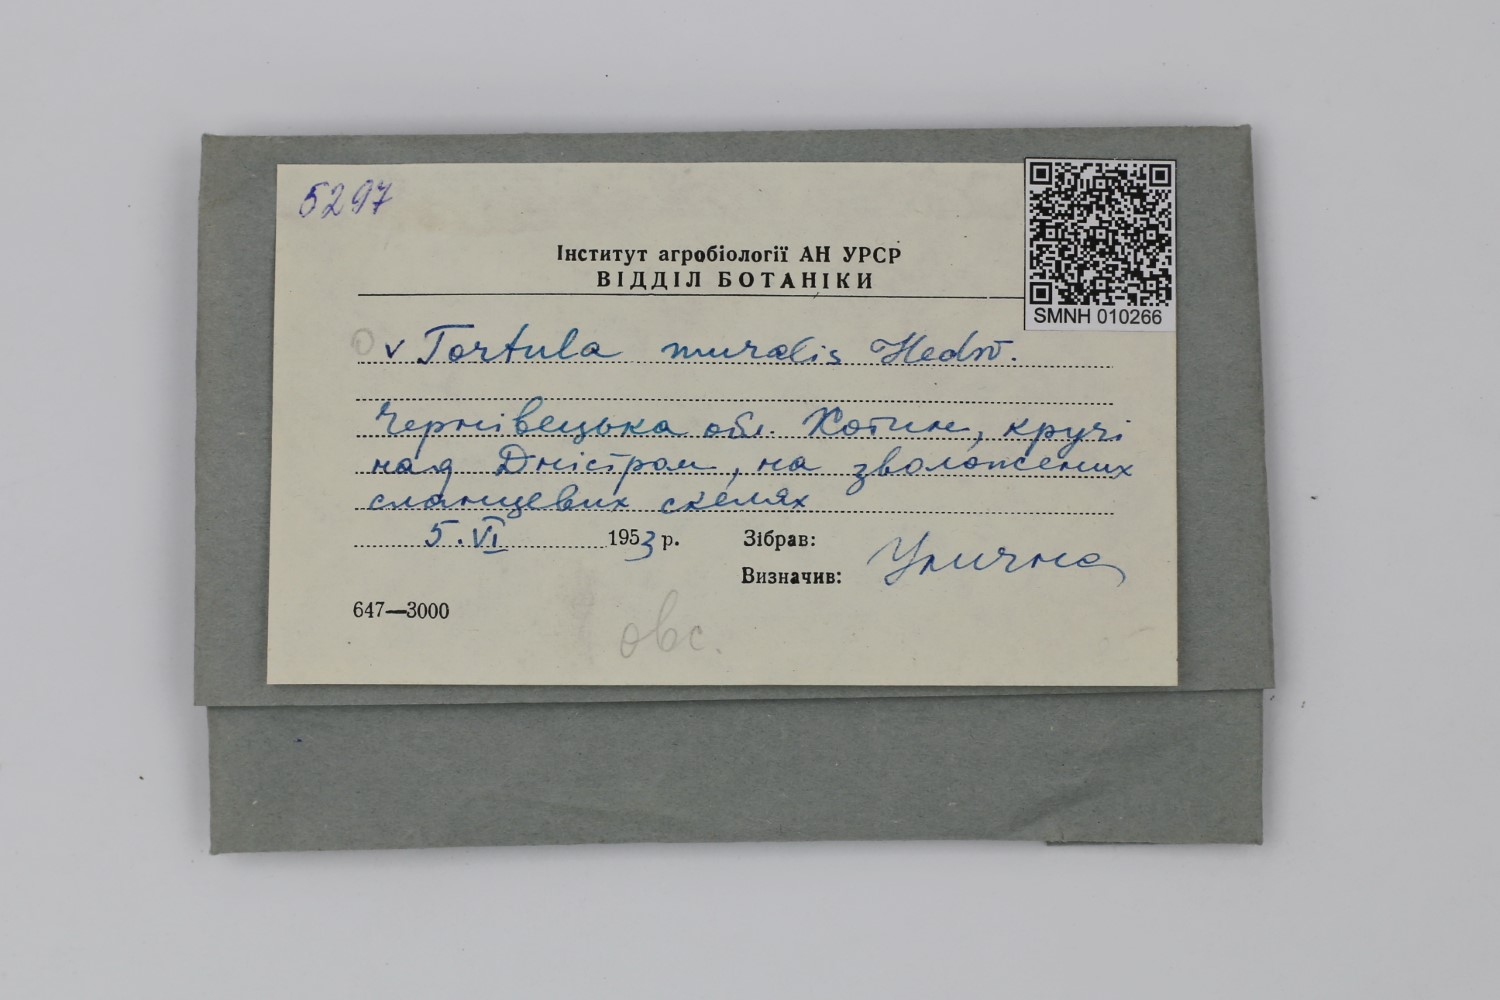 5297
Інститут агробіології АН УРСР
ВІДДІЛ БОТАНІКИ
SMNH 010266
v Tortula muralis Hedw.
Чернівецька обл. Хотин, кручі
над Дністром, на зволожених
сланцевих скелях
5.VI 1953 р. Зібрав: Улична
Визначив:
647—3000